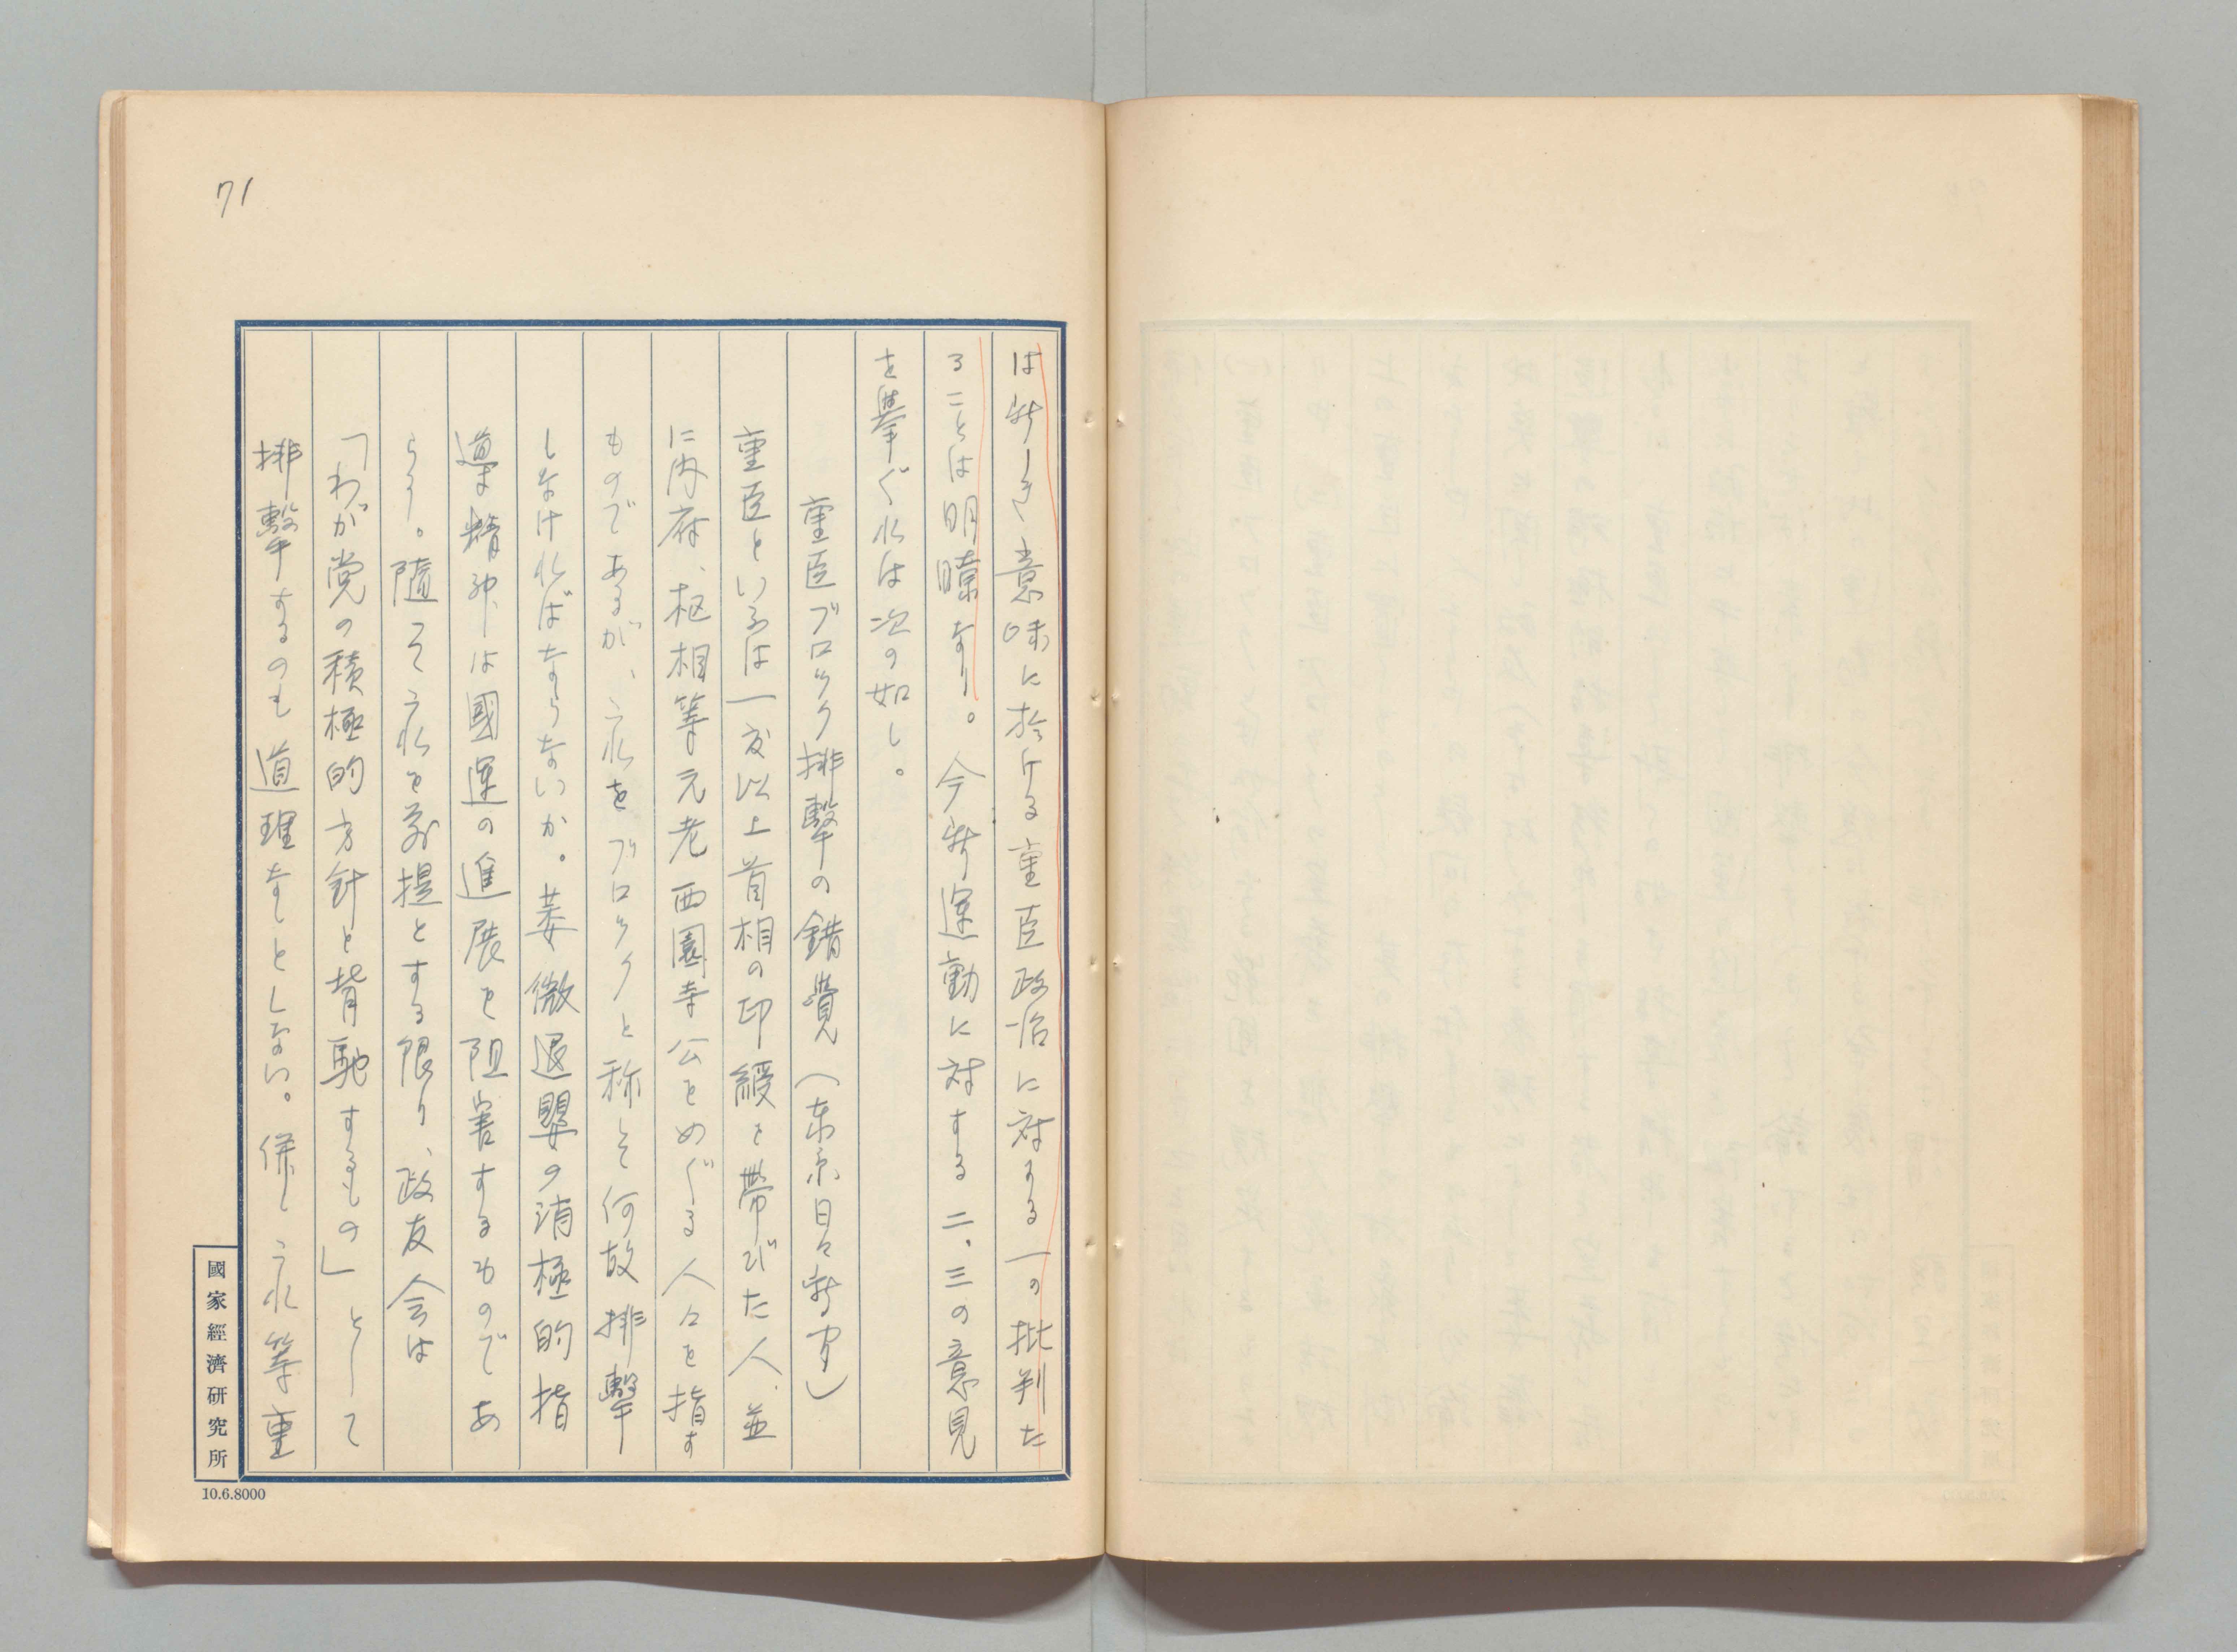 71
は新しき意味に於ける重臣政治に対する一の批判た
ることは明瞭なり。今新運動に対する二、三の意見
を挙ぐれば次の如し。
重臣ブロック排撃の錯覚(東京日々新聞)
重臣といふは一度以上首相の印綬を帯びた人、並
に内府、枢相等元老西園寺公をめぐる人々を指す
ものであるが、これをブロックと称して何故排撃
しなければならないか。萎微退嬰の消極的指
導精神は國運の進展を阻害するものであ
らう。随てこれを前提とする限り、政友会は
「わが党の積極的方針と背馳するもの」として
排撃するのも道理なしとしない。併しこれ等重
國家經濟研究所
10.6.8000